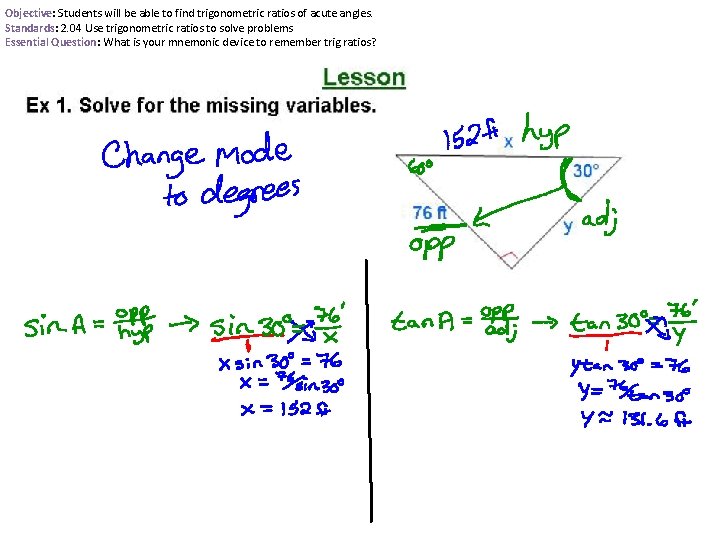 Objective: Students will be able to find trigonometric ratios of acute angles.
Standards: 2.04 Use trigonometric ratios to solve problems
Essential Question: What is your mnemonic device to remember trig ratios?
Lesson
Ex 1. Solve for the missing variables.
Change mode
to degrees
152 ft x hyp
60° 30°
76 ft
opp
y adj
sin A = opp/hyp → sin 30° = 76'/x
1
x sin 30° = 76
x = 76/sin 30°
x = 152 ft
tan A = opp/adj → tan 30° = 76'/y
1
y tan 30° = 76
y = 76/tan 30°
y ≈ 131.6 ft